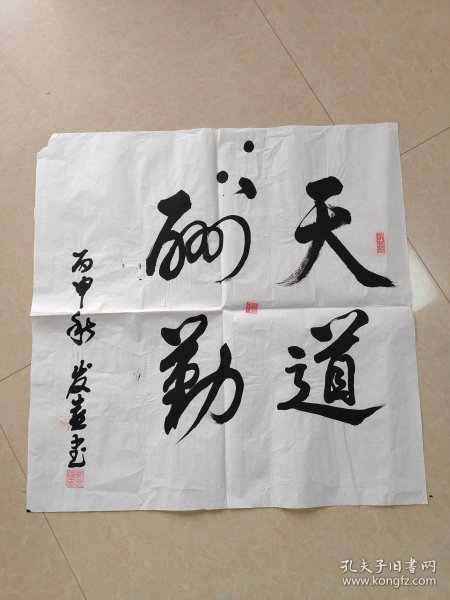 天道
酬勤
丙申秋 发喜书
孔夫子旧书网
www.kongfz.com